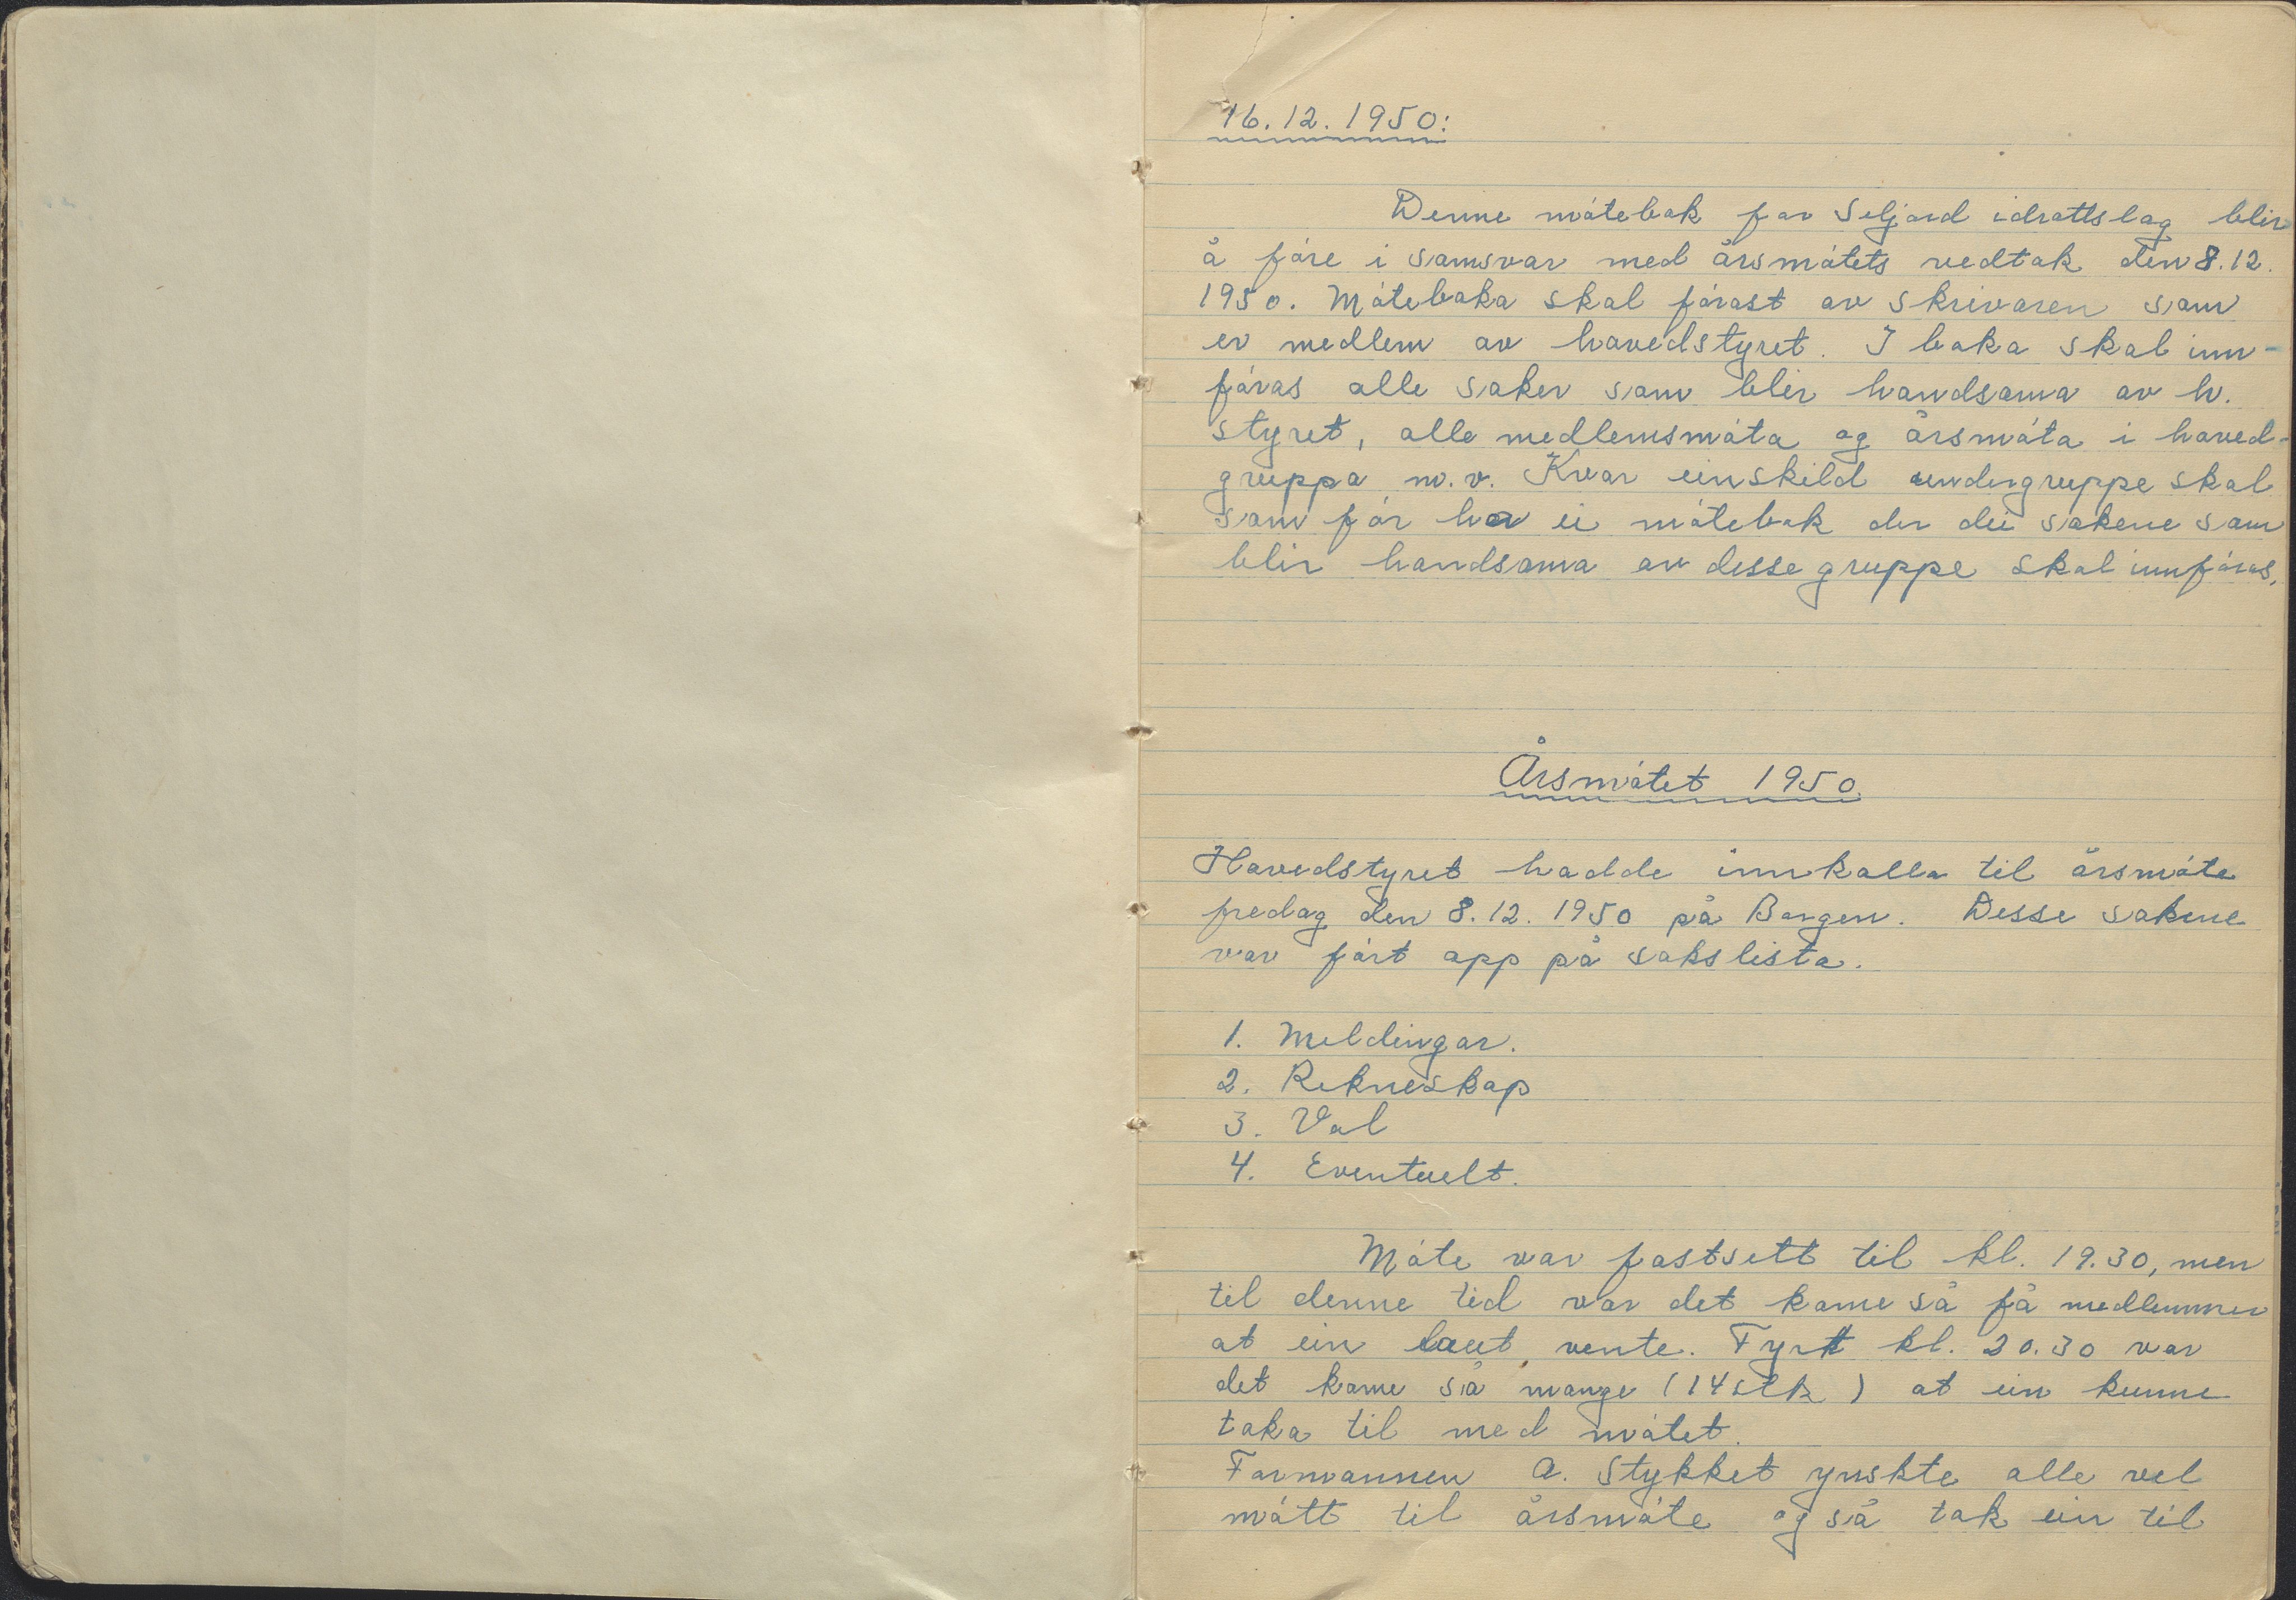 16.12.1950:
Denne møtebok for Seljord idrottslag blir
å føre i samsvar med årsmøtets vedtak den 8.12.
1950. Møteboka skal førast av skrivaren som
er medlem av hovedstyret. I boka skal inn-
føras alle saker som blir handsama av h.
styret, alle medlemsmøta og årsmøta i hoved-
gruppa m.v. Kvar einskild undergruppe skal
som før ha ei møtebok der dei sakene som
blir handsama av desse gruppe skal innføras.
Årsmøtet 1950.
Hovedstyret hadde innkalla til årsmøte
fredag den 8.12.1950 på Borgen. Desse sakene
var ført opp på sakslista.
1. Meldingar.
2. Rekneskap
3. Val
4. Eventuelt.
Møte var fastsett til kl. 19.30, men
til denne tid var det kome så få medlemmer
at ein laut vente. Fyrst kl. 20.30 var
det kome så mange (14 stk) at ein kunne
taka til med møtet.
Formannen O. Stykket ynskte alle vel
møtt til årsmøte og så tok ein til